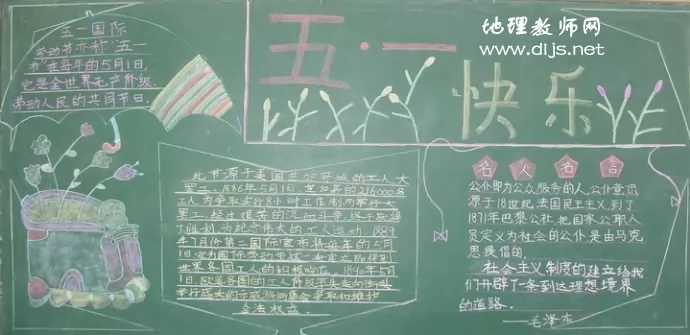 五一国际
劳动节亦称"五一
为在每年的5月1日.
它是全世界无产阶级.
劳动人民的共同节日.
五·一
快乐
地理教师网
www.dljs.net
此节源于美国芝加哥城的工人大
罢工.1886年5月1日.芝加哥的216000名
工人为争取实行8小时工作制而举行大
罢工.经过艰苦的流血斗争.终于取得
了胜利.为纪念伟大的工人运动.1889
年7月份第二国际宣布将每年的5月
1日定为国际劳动节这一决定立即得到
世界各国工人的积极响应.1890年5月
1日.欧美各国的工人阶级率先走向街头
举行盛大的示威游行集会争取和维护
合法权益.
名人名言
公仆即为公众服务的人.公仆意识
源于18世纪法国民主主义.到了
1871年巴黎公社.把国家公职人
员定义为社会的公仆.是由马克
思提倡的.
社会主义制度的建立给我
们开辟了一条到达理想境界
的道路.
—毛泽东